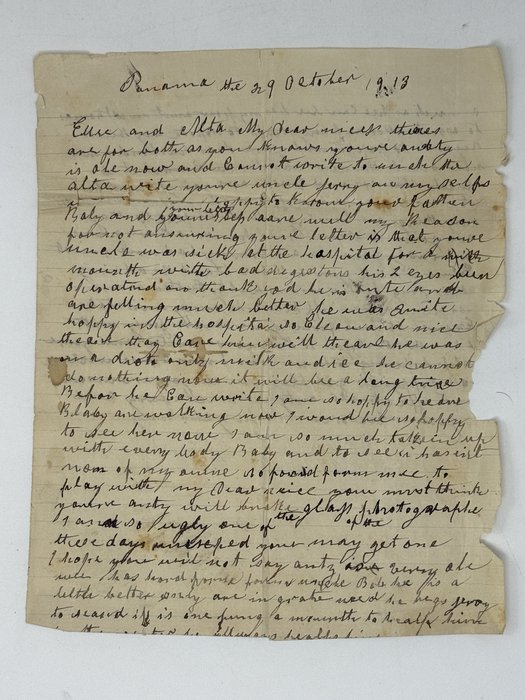 Panama the 29 October 1913
Elsie and Alta My Dear niece theies
are for both as you Knows you're aunty
is ole now and Cannot write to much the
alta write you're uncle Jerry an my selfs
happy to know your father
Baby and are well my Reason
for not answring you're letter is that you're
uncle was sick at the hospital for a
mounth with bad his 2 eyes been
operated on thank god he is out and
are felling much better he was quite
happy in the hospital so Clean and nice
theed thay Care him well theare he was
on a diot only milk and ice he cannot
do nothing now it will be a long time
Before he Can write I am so happy to heare
Baby are walking now I would be so happy
to see her now I am so much taken up
with every body Baby and to see i hasint
non of my owne so fare form mee to
play with my Dear niece you must think
you're aunty will brake the glass photographe
I am so ugly one of the of the
these days you may get one
I hope you will not say anty is very ole
has heard from uncle Bob he is a
little better he begs Jerry
to is one a mounth to